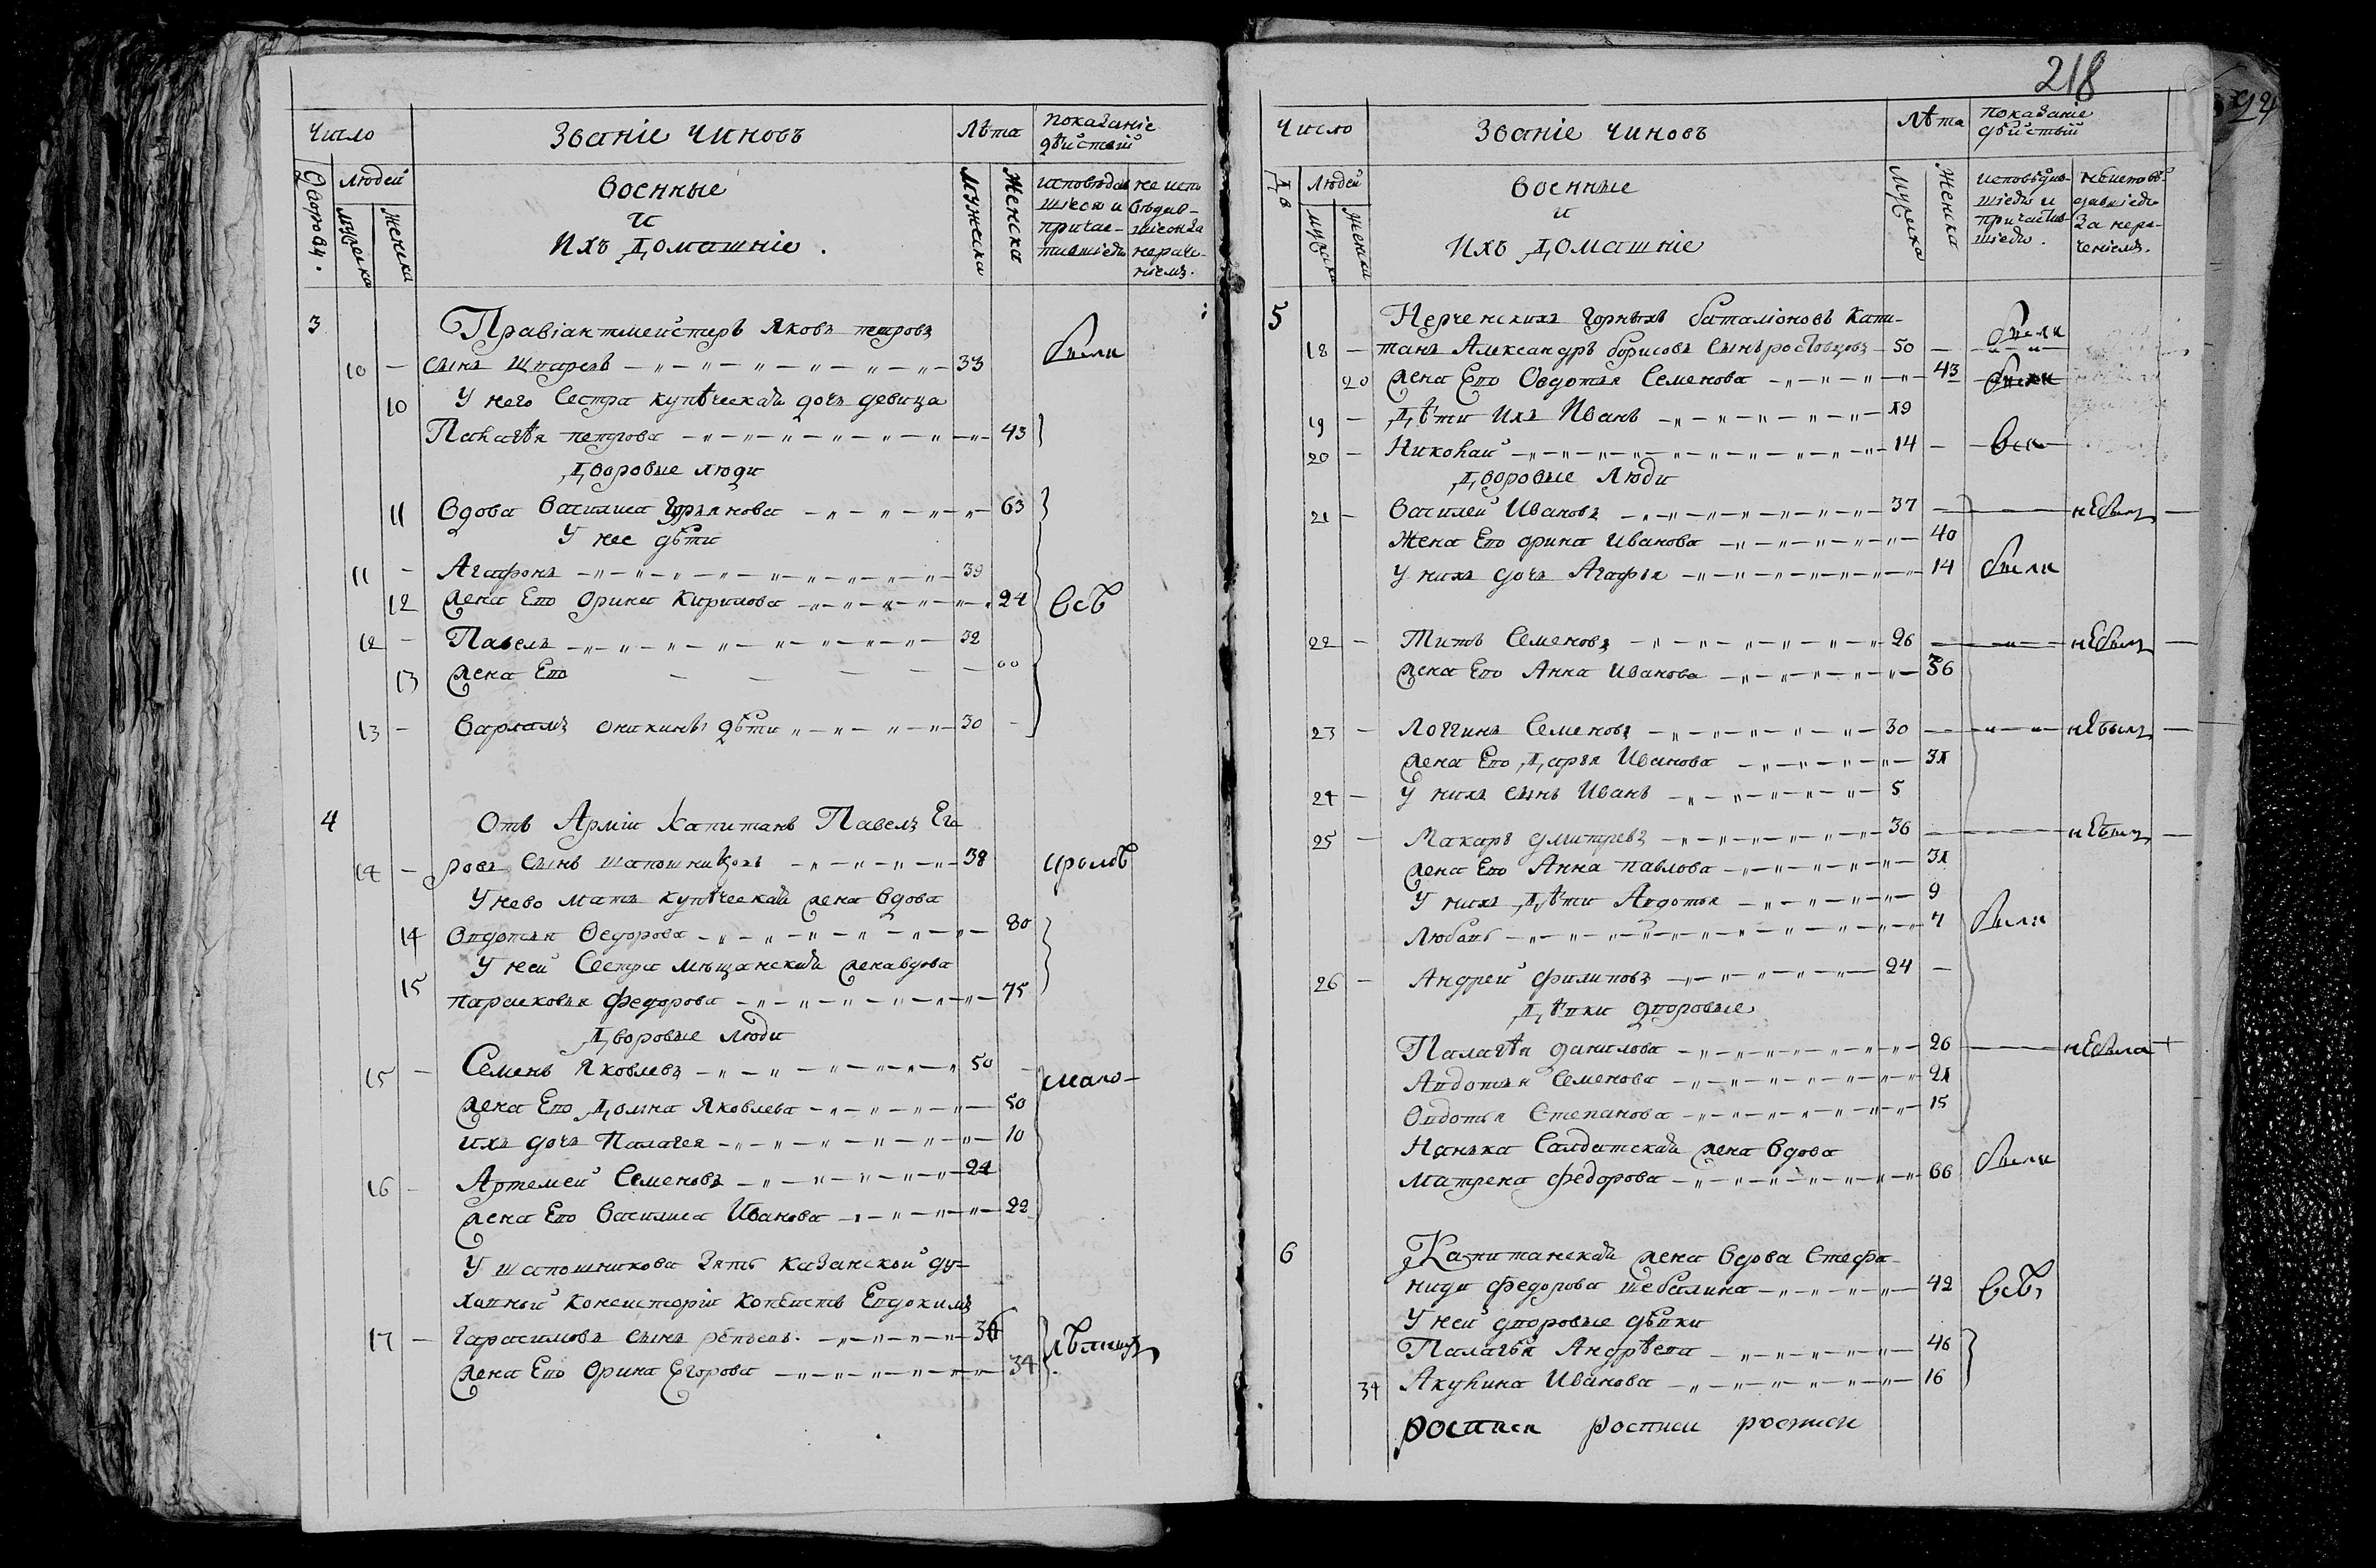 Число
Званіе чиновъ
Лѣта
показаніе дѣйствій
дворовъ.
людей
мужеска
женска
военные
и
ихъ домашніе.
мужеска
женска
исповѣдавшіеся и причастившіеся
не исповѣдавшіеся за нераченіемъ.
3
Правіантмейстеръ Яковъ петровъ
10 — сынъ 33 были
У него Сестра купѣческая дочь девица
10 Пелагѣя петрова 43
Дворовые люди
11 Вдова Василиса 63
У нее дѣти
11 — Агафонъ 39
12 жена Его Орина Кирилова 24 всѣ
12 — Павелъ 32
13 жена Его 00
13 — Варламъ оникины дѣти 30
4 Отъ Арміи Капитанъ Павелъ Его
14 — ровъ Сынъ шапошниковъ 38
У нево мать купѣческая жена вдова
14 Овдотья Ѳедорова 80
У неи Сестра мещанская жена вдова
15 парасковья федорова 75
Дворовые люди
15 — Семенъ Яковлевъ 50
жена Его Домна Яковлева 50
ихъ дочь Палагея 10
16 — Артемей Семеновъ 24
жена Его Василиса Иванова 22
У шапошникова зять казанской ду-
ховной консисторіи копеистъ Евдокимъ
17 — Гарасимовъ сынъ
жена Его Орина Егорова 34
218
Число
Званіе чиновъ
Лѣта
показаніе дѣйствій
Людей
мужеска
женска
военные
и
ихъ домашніе
мужеска
женска
исповѣдавшіеся и причастившіеся.
неисповѣдавшіеся за нераченіемъ.
5 Нерченскихъ горныхъ баталіоновъ Капи-
18 — танъ Александръ борисовъ Сынъ ростовцовъ 50 были
20 жена Его Овдотья Семенова 43 были
19 — Дѣти ихъ Иванъ 19
20 — Николай 14 — все
Дворовые Люди
21 — Василей Ивановъ 37 — небылъ
Жена Его орина иванова 40
у нихъ дочь Агафья 14 были
22 — Титъ Семеновъ 26 — небылъ
жена Его Анна Иванова 36
23 — Логгинъ Семеновъ 30 — небылъ
жена Его Дарья Иванова 31
24 — У нихъ сынъ Иванъ 5
25 — Макаръ дмитревъ 36 — небылъ
жена Его Анна павлова 31
У нихъ Дѣти Авдотья 9
Любавь 7 были
26 — Андрей филиповъ 24 —
Дѣвки дворовые
Палагѣя данилова 26 — небыла
Авдотья Семенова 21
Овдотья Степанова 15
Нянька Салдатская жена вдова
матрена федорова 66 были
6 Капитанская жена вдова Стефа-
нида федорова шебалина 42 всѣ
У неи дворовые дѣвки
Палагѣя Андрѣева 46
34 Акулина Иванова 16
росписи росписи росписи